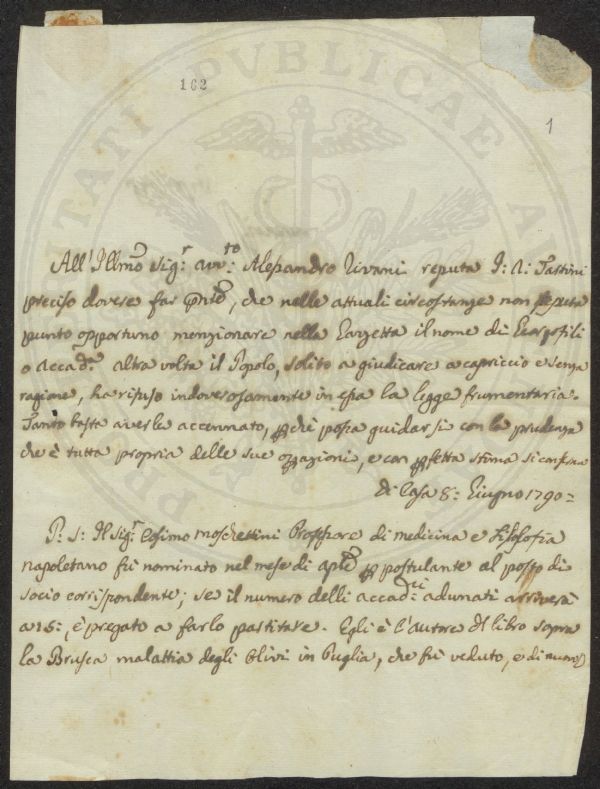 162
1
All' Illmo Sigr avvto Alessandro Rivani reputa I: A: Tartini
preciso dovere far pnte, che nelle attuali circostanze non reputa
punto opportuno menzionare nella Gazzetta il nome di Georgofili
o Accada altra volta il Popolo, solito a giudicare a capriccio e senza
ragione, ha rifuso indoverosamente in essa la legge frumentaria.
Tanto basta averle accennato, pchè possa guidarsi con la prudenza
che è tutta propria delle sue opazioni, e con pfetta stima si conferma
di Casa 8: Giugno 1790=
P: S: Il Sigr Cosimo Moschettini Professore di medicina e Filosofia
napoletano fù nominato nel mese di aple p postulante al posto di
socio corrispondente; se il numero delli accadci adunati arriverà
a 15:, è pregato a farlo partitare. Egli è l'autore del libro sopra
la Brusca malattia degli Olivi in Puglia, che fù veduto, e di nuovo